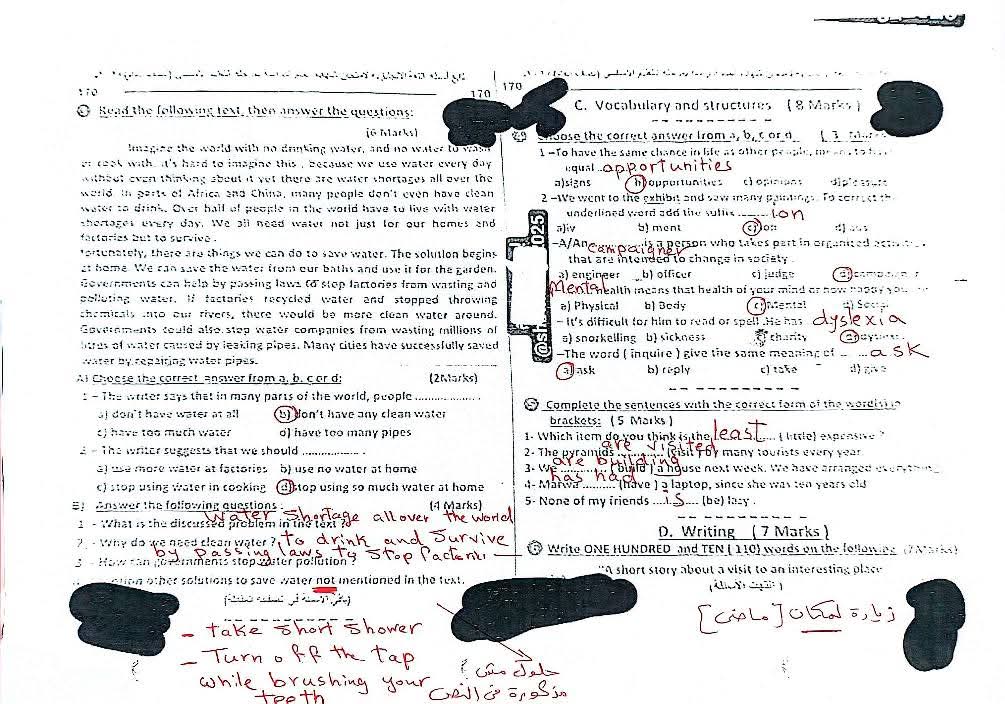 170
170
Read the following text, then answer the questions:
(6 Marks)
Imagine the world with no drinking water, and no water to wash
or cook with. it's hard to imagine this, because we use water every day
without even thinking about it yet there are water shortages all over the
world. In parts of Africa and China, many people don't even have clean
water to drink. Over half of people in the world have to live with water
shortages every day. We all need water not just for our homes and
factories but to survive.
Fortunately, there are things we can do to save water. The solution begins
at home. We can save the water from our baths and use it for the garden.
Governments can help by passing laws to stop factories from wasting and
polluting water. If factories recycled water and stopped throwing
chemicals into our rivers, there would be more clean water around.
Governments could also stop water companies from wasting millions of
litres of water caused by leaking pipes. Many cities have successfully saved
water by repairing water pipes.
A) Choose the correct answer from a, b, c or d:
(2Marks)
1 - The writer says that in many parts of the world, people ..................
a) don't have water at all
b) don't have any clean water
c) have too much water
d) have too many pipes
2 - The writer suggests that we should .................
a) use more water at factories
b) use no water at home
c) stop using water in cooking
d) stop using so much water at home
B) Answer the following questions :
(4 Marks)
water shortage all over the world
1 - What is the discussed problem in the text ?
2 - Why do we need clean water ? to drink and survive
by passing laws to stop factories
3 - How can governments stop water pollution ?
other solutions to save water not mentioned in the text.
(باقي الأسئلة في الصفحة
- take short shower
- Turn off the tap
while brushing your
teeth
حلول مش
مذكورة في النص
170
C. Vocabulary and structures ( 8 Marks )
Choose the correct answer from a, b, c or d
( 3 Marks
1 -To have the same chance in life as other people, means to have
equal .. opportunities
a)signs
b) opportunities
c) opinions
d)pleasure
2 -We went to the exhibit and saw many paintings. To correct the
underlined word add the suffix ......... ion
a)iv
b) ment
c) ion
d)
-A/An campaigner is a person who takes part in organised
that are intended to change in society .
a) engineer
b) officer
c) judge
d) campaigner
Mental health means that health of your mind or how happy you
a) Physical
b) Body
c) Mental
d) Social
- It's difficult for him to read or spell .He has dyslexia
a) snorkelling
b) sickness
c) charity
-The word ( inquire ) give the same meaning of .. ... ask
a) ask
b) reply
c) take
d) give
Complete the sentences with the correct form of the word(s) in
brackets: ( 5 Marks )
1- Which item do you think is the least ... ( little) expensive ?
2- The pyramids are visited (visit ) by many tourists every year
3- We are building ( build ) a house next week. We have arranged everything
4- Marwa has had (have ) a laptop, since she was ten years old
5- None of my friends ....is.... (be) lazy .
D. Writing ( 7 Marks )
Write ONE HUNDRED and TEN ( 110) words on the following (7Marks)
"A short story about a visit to an interesting place
(انتهت الأسئلة)
زيارة لمكان [ماضى]